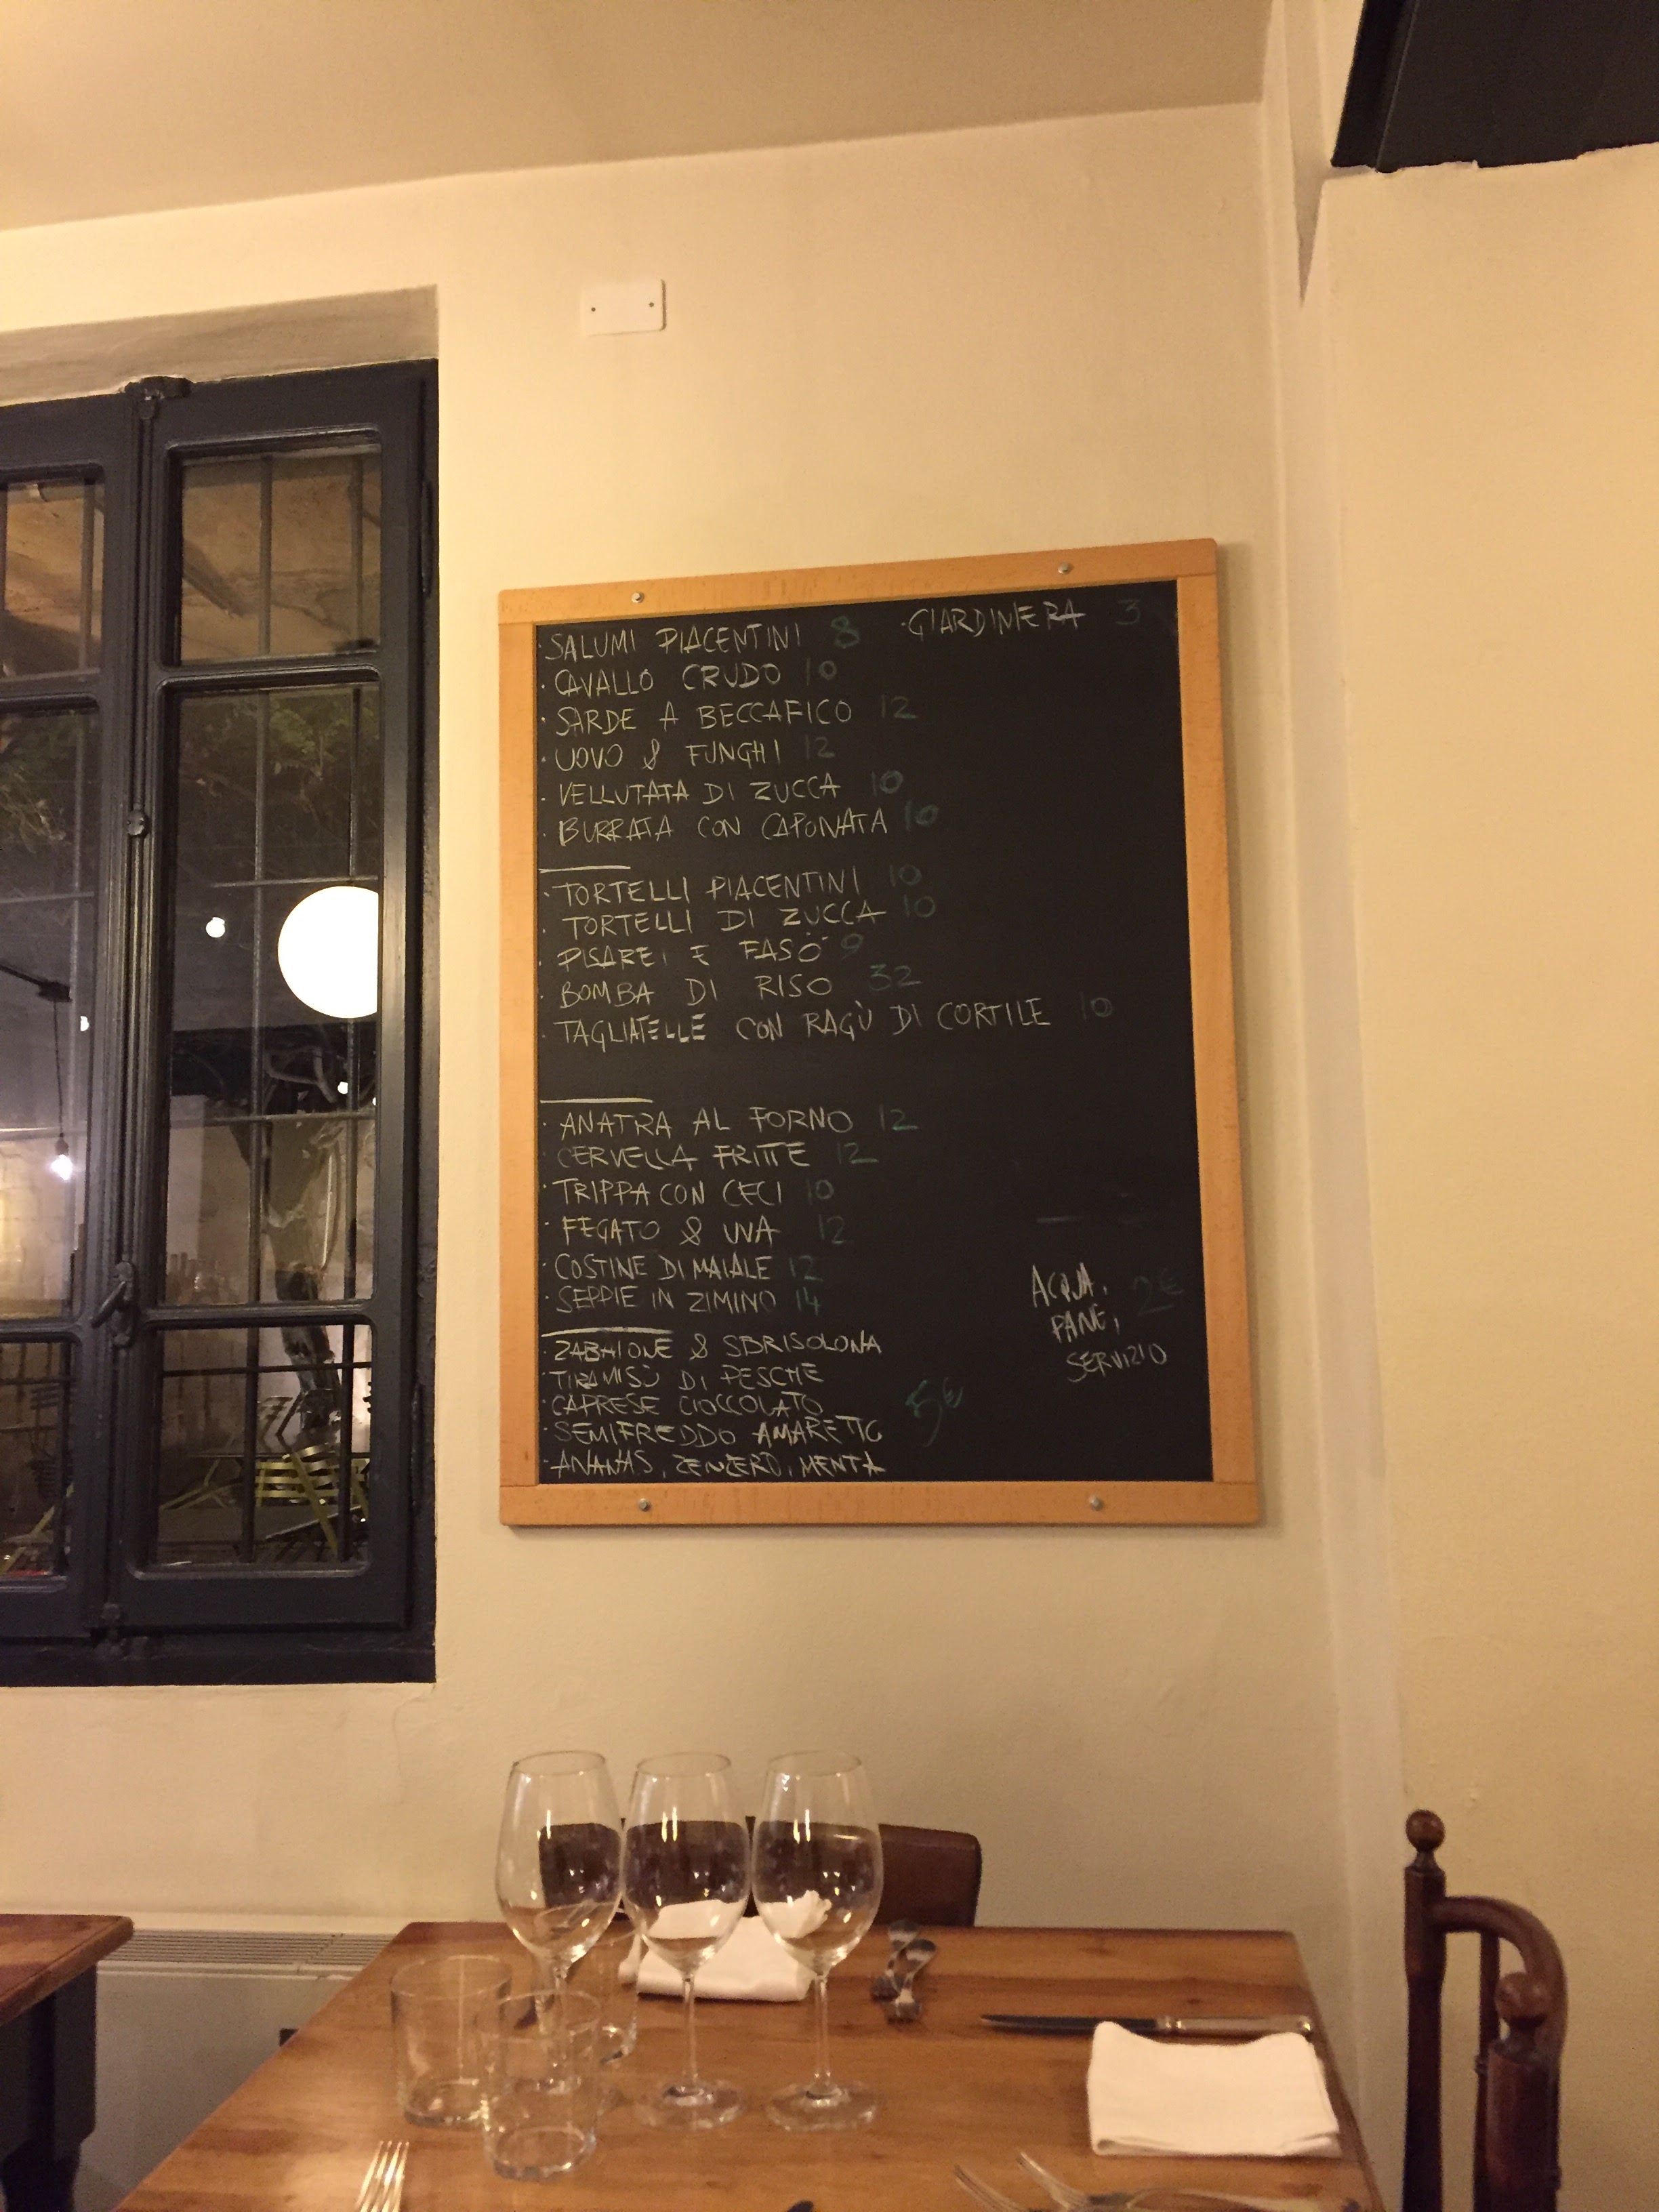 · SALUMI PIACENTINI 8
· GIARDINIERA 3
· CAVALLO CRUDO 10
· SARDE A BECCAFICO 12
· UOVO & FUNGHI 12
· VELLUTATA DI ZUCCA 10
· BURRATA CON CAPONATA 10
· TORTELLI PIACENTINI 10
· TORTELLI DI ZUCCA 10
· PISAREI E FASÖ 9
· BOMBA DI RISO 32
· TAGLIATELLE CON RAGÙ DI CORTILE 10
· ANATRA AL FORNO 12
· CERVELLA FRITTE 12
· TRIPPA CON CECI 10
· FEGATO & UVA 12
· COSTINE DI MAIALE 12
· SEPPIE IN ZIMINO 14
· ZABAIONE & SBRISOLONA
· TIRAMISÙ DI PESCHE
· CAPRESE CIOCCOLATO
· SEMIFREDDO AMARETTO
· ANANAS, ZENZERO, MENTA
5€
ACQUA, 2€
PANE,
SERVIZIO